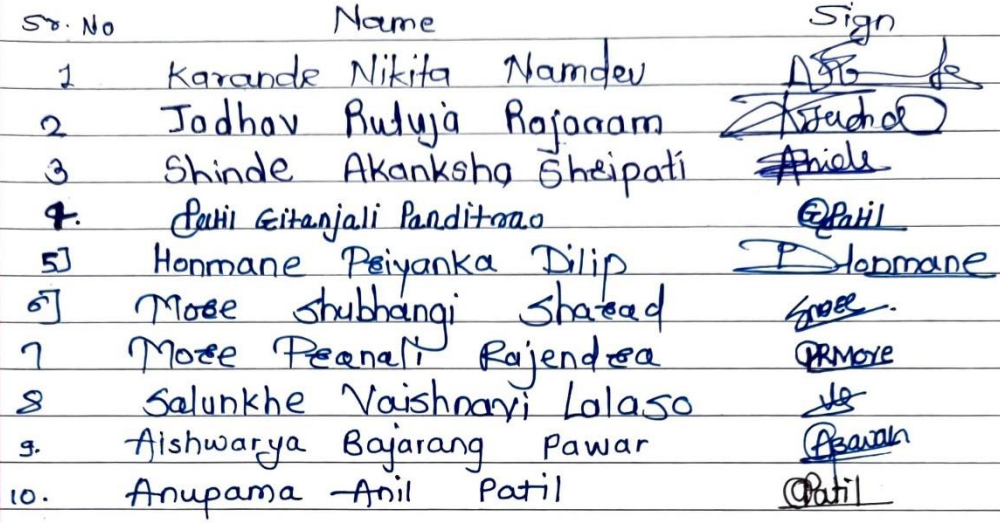 Sr. No Name Sign
1 Karande Nikita Namdev
2 Jadhav Rutuja Rajaram
3 Shinde Akanksha Shripati
4. Patil Gitanjali Panditrao GPatil
5] Honmane Priyanka Dilip Honmane
6] More Shubhangi Sharad
7 More Pranali Rajendra PRMore
8 Salunkhe Vaishnavi Lalaso
9. Aishwarya Bajarang Pawar
10. Anupama Anil Patil Patil